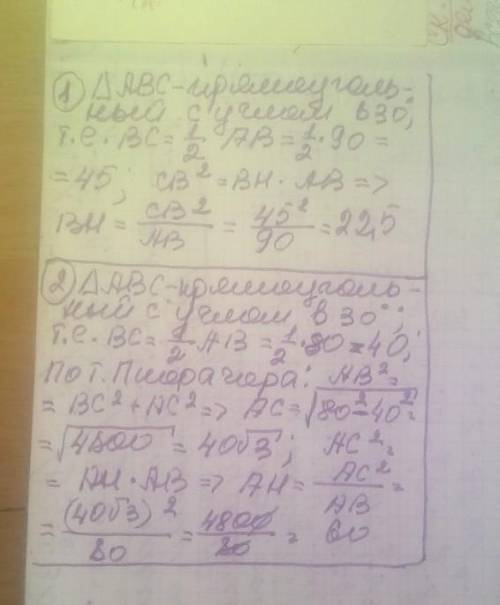 ① △ABC-прямоуголь-
ный с углом в 30°,
т.е. BC = 1/2 AB = 1/2 · 90 =
= 45; CB² = BH · AB =>
BH = CB²/AB = 45²/90 = 22,5
② △ABC-прямоуголь-
ный с углом в 30°;
т.е. BC = 1/2 · AB = 1/2 · 80 = 40;
По т. Пифагора: AB² =
= BC² + AC² => AC = √80² - 40² =
= √4800 = 40√3; AC² =
= AH · AB => AH = AC²/AB =
= (40√3)²/80 = 4800/80 = 60